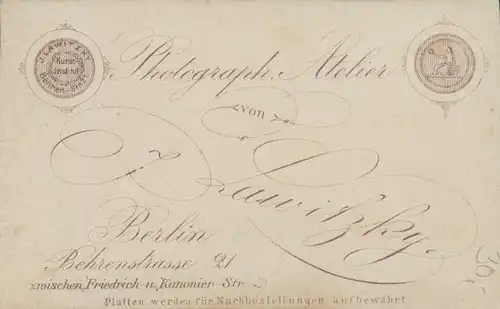 J. LAWITZKY
Kunst-
Institut
Behren-Str. 21
Photograph. Atelier
von
J. Lawitzky.
Berlin
Behrenstrasse 21
zwischen Friedrich- u. Kanonier-Str.
Platten werden für Nachbestellungen aufbewahrt